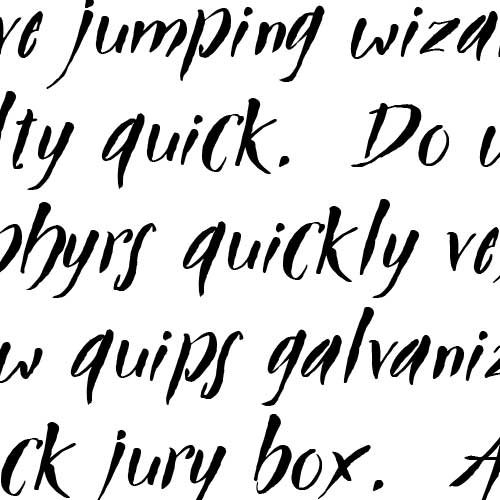 ve jumping wiza
lty quick. Do
phyrs quickly ve
w quips galvaniz
ck jury box. A